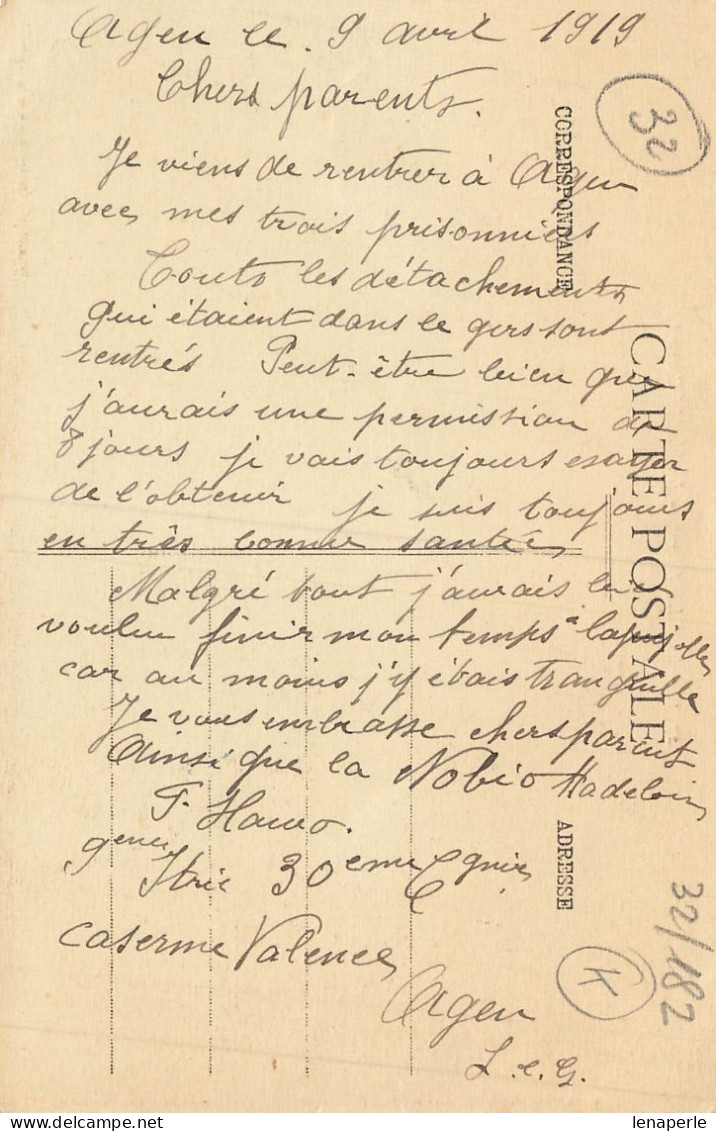 Agen le 9 avril 1919
Chers parents.
Je viens de rentrer à Agen
avec mes trois prisonniers
Touts les détachements
qui étaient dans le gers sont
rentrés Peut-être bien que
j'aurais une permission de
8 jours je vais toujours essayer
de l'obtenir je suis toujours
en très bonne santée
Malgré tout j'aurais bien
voulu finir mon temps à lapujolle
car au moins j'y étais tranquille
Je vous embrasse chers parent
Ainsi que la Nobio Madeloin
9eme
30eme Cgnie
caserne Valence
Agen
L.e.G.
CORRESPONDANCE
CARTE POSTALE
ADRESSE
32
32/182
K
lenaperle